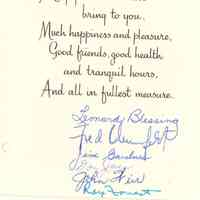 bring to you,
Much happiness and pleasure,
Good friends, good health
and tranquil hours,
And all in fullest measure.
Leonard Blessing
Fred
John Weir